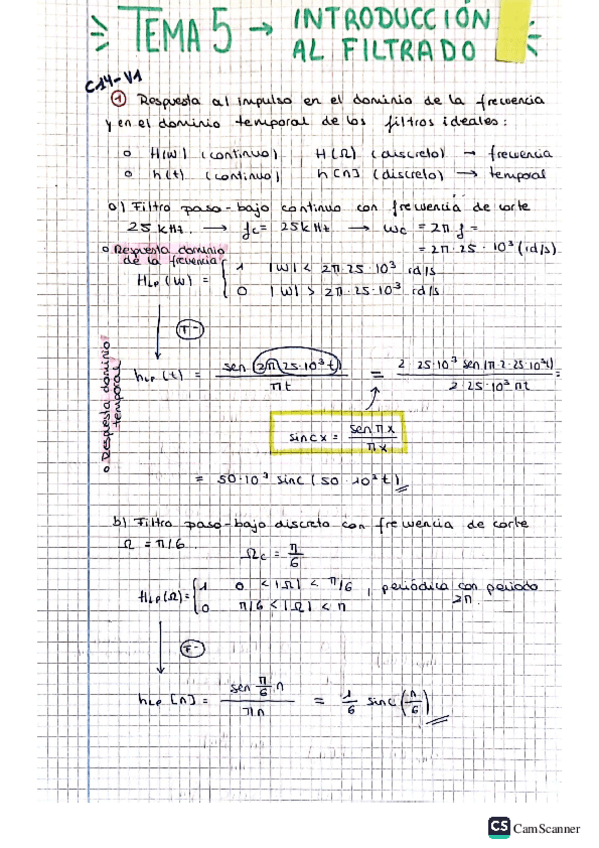 TEMA 5 → INTRODUCCIÓN AL FILTRADO
C14-V1
① Respuesta al impulso en el dominio de la frecuencia
y en el dominio temporal de los filtros ideales:
o H(w) (continuo) H(Ω) (discreto) → frecuencia
o h(t) (continuo) h[n] (discreto) → temporal
a) Filtro paso-bajo continuo con frecuencia de corte
25 kHz. → fc = 25kHz → wc = 2π f =
= 2π·25·10³ (rd/s)
o Respuesta dominio
de la frecuencia
H_LP(w) = { 1 |w| < 2π·25·10³ rd/s
0 |w| > 2π·25·10³ rd/s
F⁻
o Respuesta dominio
temporal
h_LP(t) = sen(2π(25·10³t) / πt = 2·25·10³ sen(π·2·25·10³t) / 2·25·10³ πt =
sinc x = sen πx / πx
= 50·10³ sinc(50·10³t)
b) Filtro paso-bajo discreto con frecuencia de corte
Ω = π/6.
Ωc = π/6
H_LP(Ω) = { 1 0 < |Ω| < π/6 , periódica con periodo
0 π/6 < |Ω| < π 2π.
F⁻
h_LP[n] = sen π/6 n / πn = 1/6 sinc(n/6)
CS CamScanner